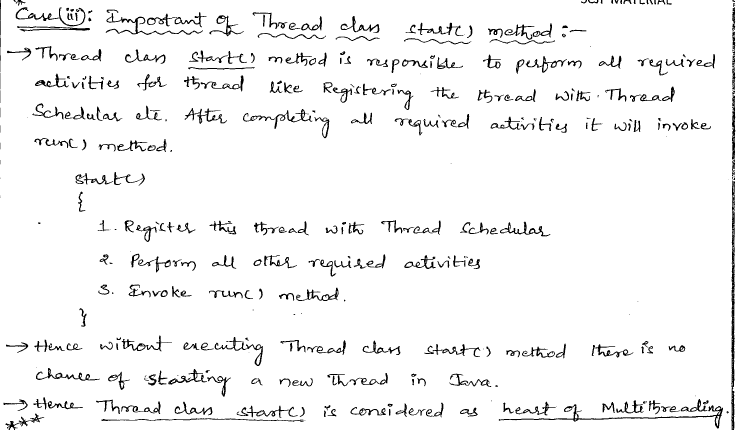 SCJP MATERIAL
* Case(iii): Important of Thread class start() method :-
→ Thread class start() method is responsible to perform all required
activities for thread like Registering the thread with Thread
Schedular etc. After completing all required activities it will invoke
run() method.
start()
{
1. Register this thread with Thread Schedular
2. Perform all other required activities
3. Invoke run() method.
}
→ Hence without executing Thread class start() method there is no
chance of starting a new Thread in Java.
→ Hence Thread class start() is considered as heart of Multithreading.
***